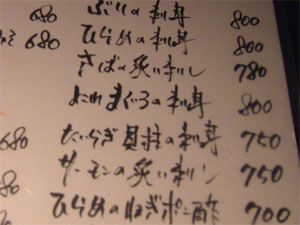 680 ぶりの刺身 800
680 ひらめの刺身 800
さばの炙り刺し 780
まぐろの刺身 800
680 たいらぎ貝柱の刺身 750
680 サーモンの炙り刺し 750
ひらめのねぎポン酢 700